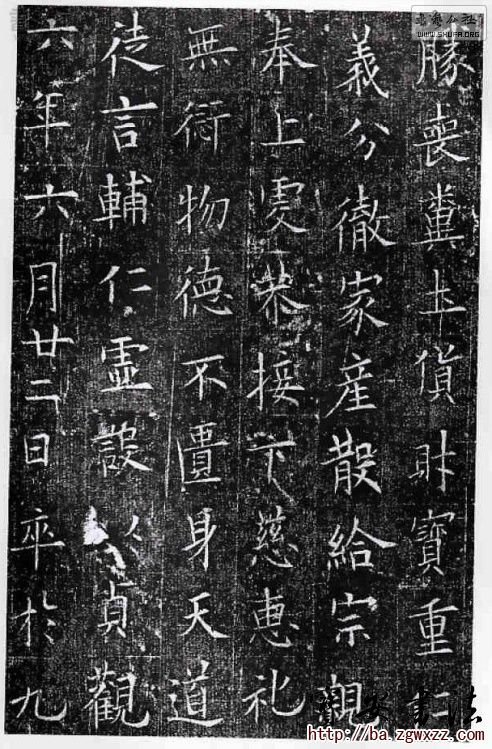 书艺公社
WWW.SHUFA.ORG
喪糞土貨財寶重仁
義分徹家産散給宗親
奉上虔恭接下慈惠礼
無物德不匱身天道
徒言輔仁霊設貞觀
六年六月廿二日卒於九
书法
http://ba.zgwxzz.com